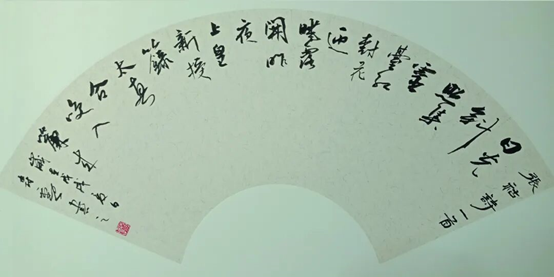 張祜詩一首
日光
斜
照集
靈
臺紅
樹花
迎
曉露
開昨
夜
上皇
新授
籙
太真
含
咲入
簾來